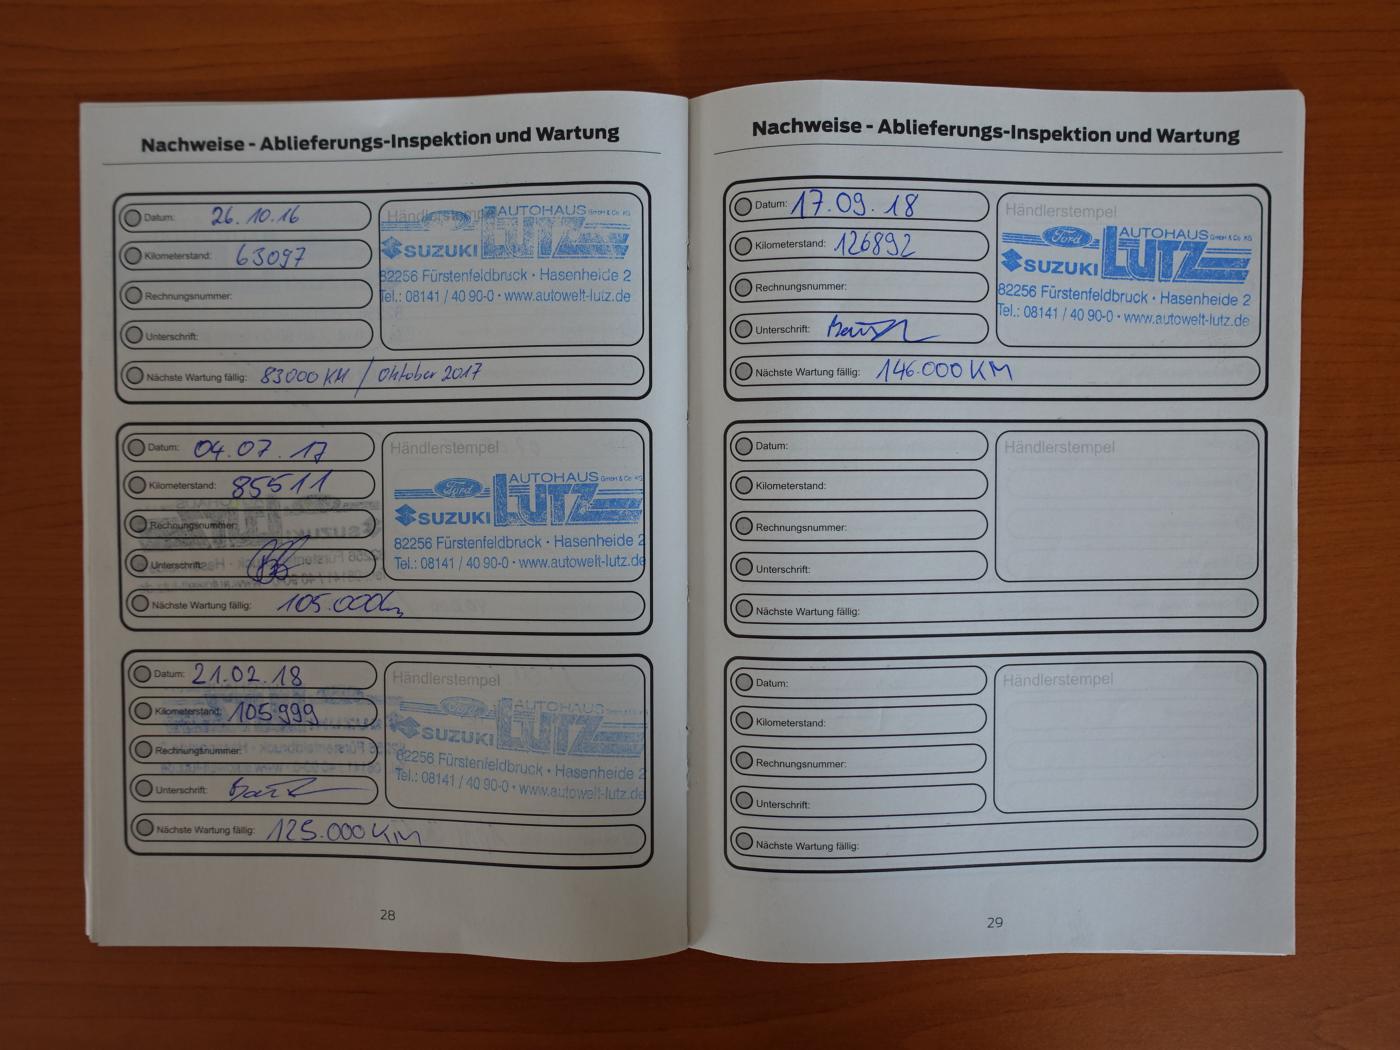 Nachweise - Ablieferungs-Inspektion und Wartung
Datum: 26.10.16
Kilometerstand: 63097
Rechnungsnummer:
Unterschrift:
Nächste Wartung fällig: 83000 KM / Oktober 2017
Händlerstempel
AUTOHAUS GmH & Co. KG
SUZUKI LUTZ
82256 Fürstenfeldbruck · Hasenheide 2
Tel.: 08141 / 40 90-0 · www.autowelt-lutz.de
Datum: 04.07.17
Kilometerstand: 85511
Rechnungsnummer:
Unterschrift:
Nächste Wartung fällig: 105.000km
Händlerstempel
AUTOHAUS GmH & Co. KG
Ford
SUZUKI LUTZ
82256 Fürstenfeldbruck · Hasenheide 2
Tel.: 08141 / 40 90-0 · www.autowelt-lutz.de
Datum: 21.02.18
Kilometerstand: 105999
Rechnungsnummer:
Unterschrift:
Nächste Wartung fällig: 125.000 KM
Händlerstempel
AUTOHAUS
Ford
SUZUKI LUTZ
82256 Fürstenfeldbruck · Hasenheide 2
Tel.: 08141 / 40 90-0 · www.autowelt-lutz.de
28
Nachweise - Ablieferungs-Inspektion und Wartung
Datum: 17.09.18
Kilometerstand: 126892
Rechnungsnummer:
Unterschrift:
Nächste Wartung fällig: 146.000 KM
Händlerstempel
AUTOHAUS GmH & Co. KG
Ford
SUZUKI LUTZ
82256 Fürstenfeldbruck · Hasenheide 2
Tel.: 08141 / 40 90-0 · www.autowelt-lutz.de
Datum:
Kilometerstand:
Rechnungsnummer:
Unterschrift:
Nächste Wartung fällig:
Händlerstempel
Datum:
Kilometerstand:
Rechnungsnummer:
Unterschrift:
Nächste Wartung fällig:
Händlerstempel
29